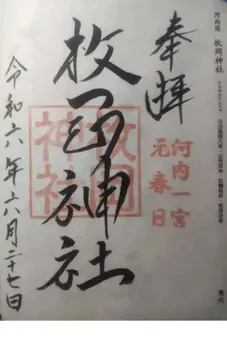 河内国 枚岡神社
奉拝
河内一宮
元春日
枚岡神社
枚岡
神社
令和六年六月二十七日